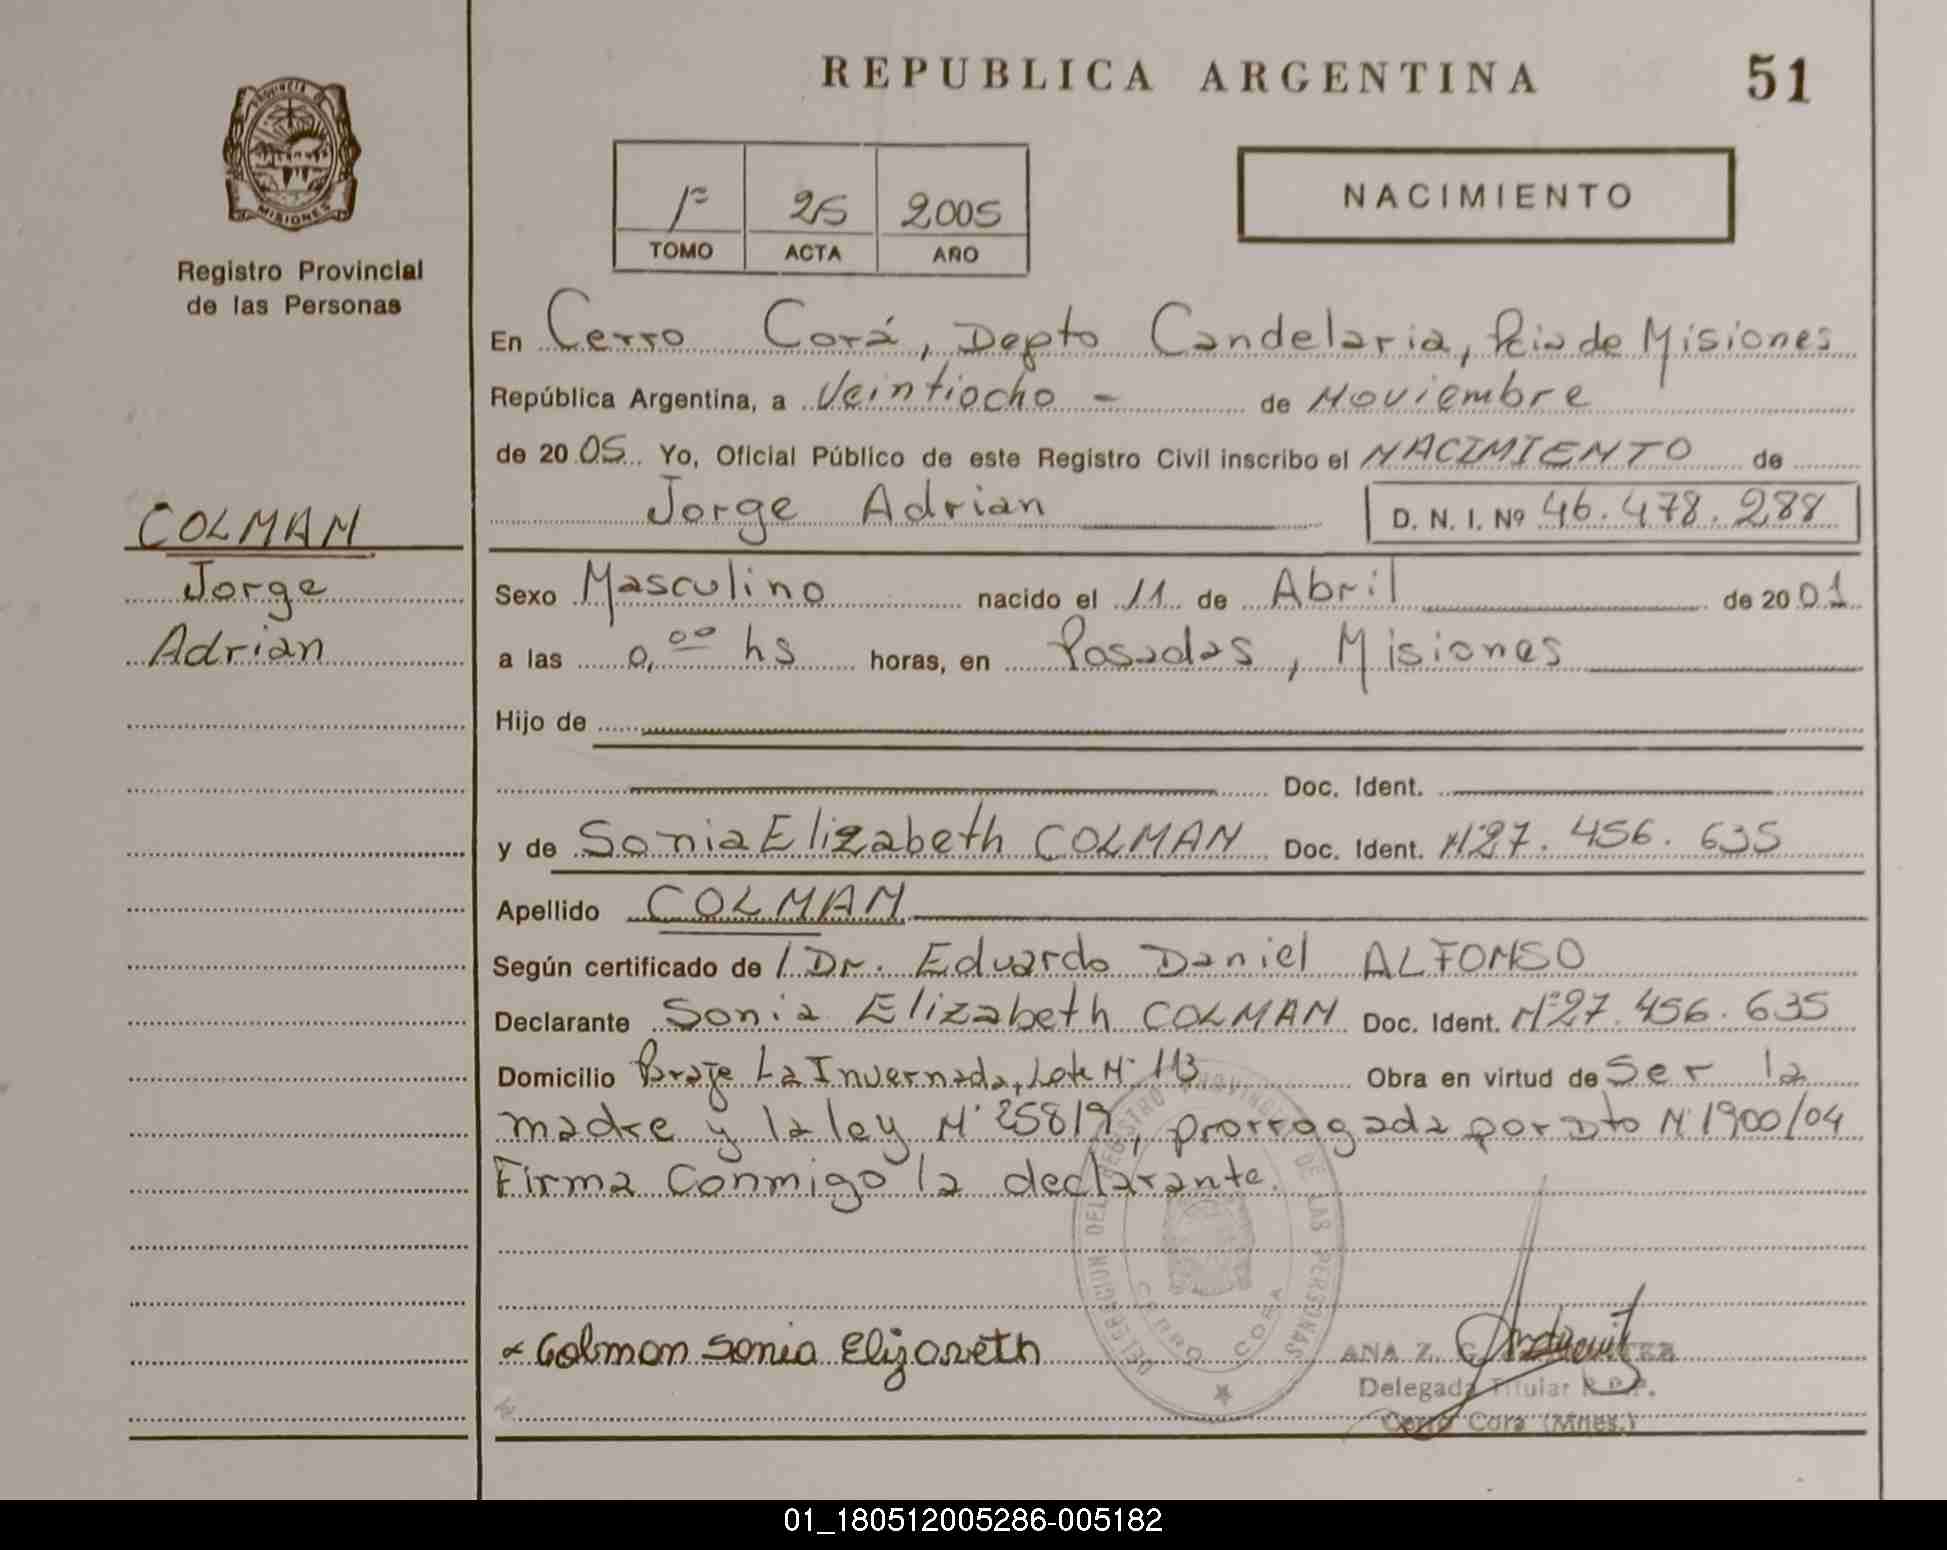 REPUBLICA ARGENTINA
51
PROVINCIA DE
MISIONES
Registro Provincial
de las Personas
1º 25 2005
TOMO ACTA AÑO
NACIMIENTO
En Cerro Corá, Depto Candelaria, Pcia de Misiones
República Argentina, a Veintiocho - de Noviembre
de 20 05 Yo, Oficial Público de este Registro Civil inscribo el NACIMIENTO de
Jorge Adrian D. N. I. Nº 46.478.288
COLMAN
Jorge
Adrian
Sexo Masculino nacido el 11 de Abril de 20 01
a las 0,00 hs horas, en Posadas, Misiones
Hijo de
Doc. Ident.
y de Sonia Elizabeth COLMAN Doc. Ident. Nº27.456.635
Apellido COLMAN
Según certificado de / Dr. Eduardo Daniel ALFONSO
Declarante Sonia Elizabeth COLMAN Doc. Ident. Nº27.456.635
Domicilio Paraje La Invernada, Lote Nº 113 Obra en virtud de Ser la
madre y la ley Nº 25819, prorrogada por Dto Nº 1900/04
Firma conmigo la declarante.
DELEGACION DEL REGISTRO PROVINCIAL DE LAS PERSONAS
CERRO CORA
Colman Sonia Elizabeth
ANA Z. G.
Delegada Titular R.P.P.
Cerro Cora (Mnes.)
01_180512005286-005182